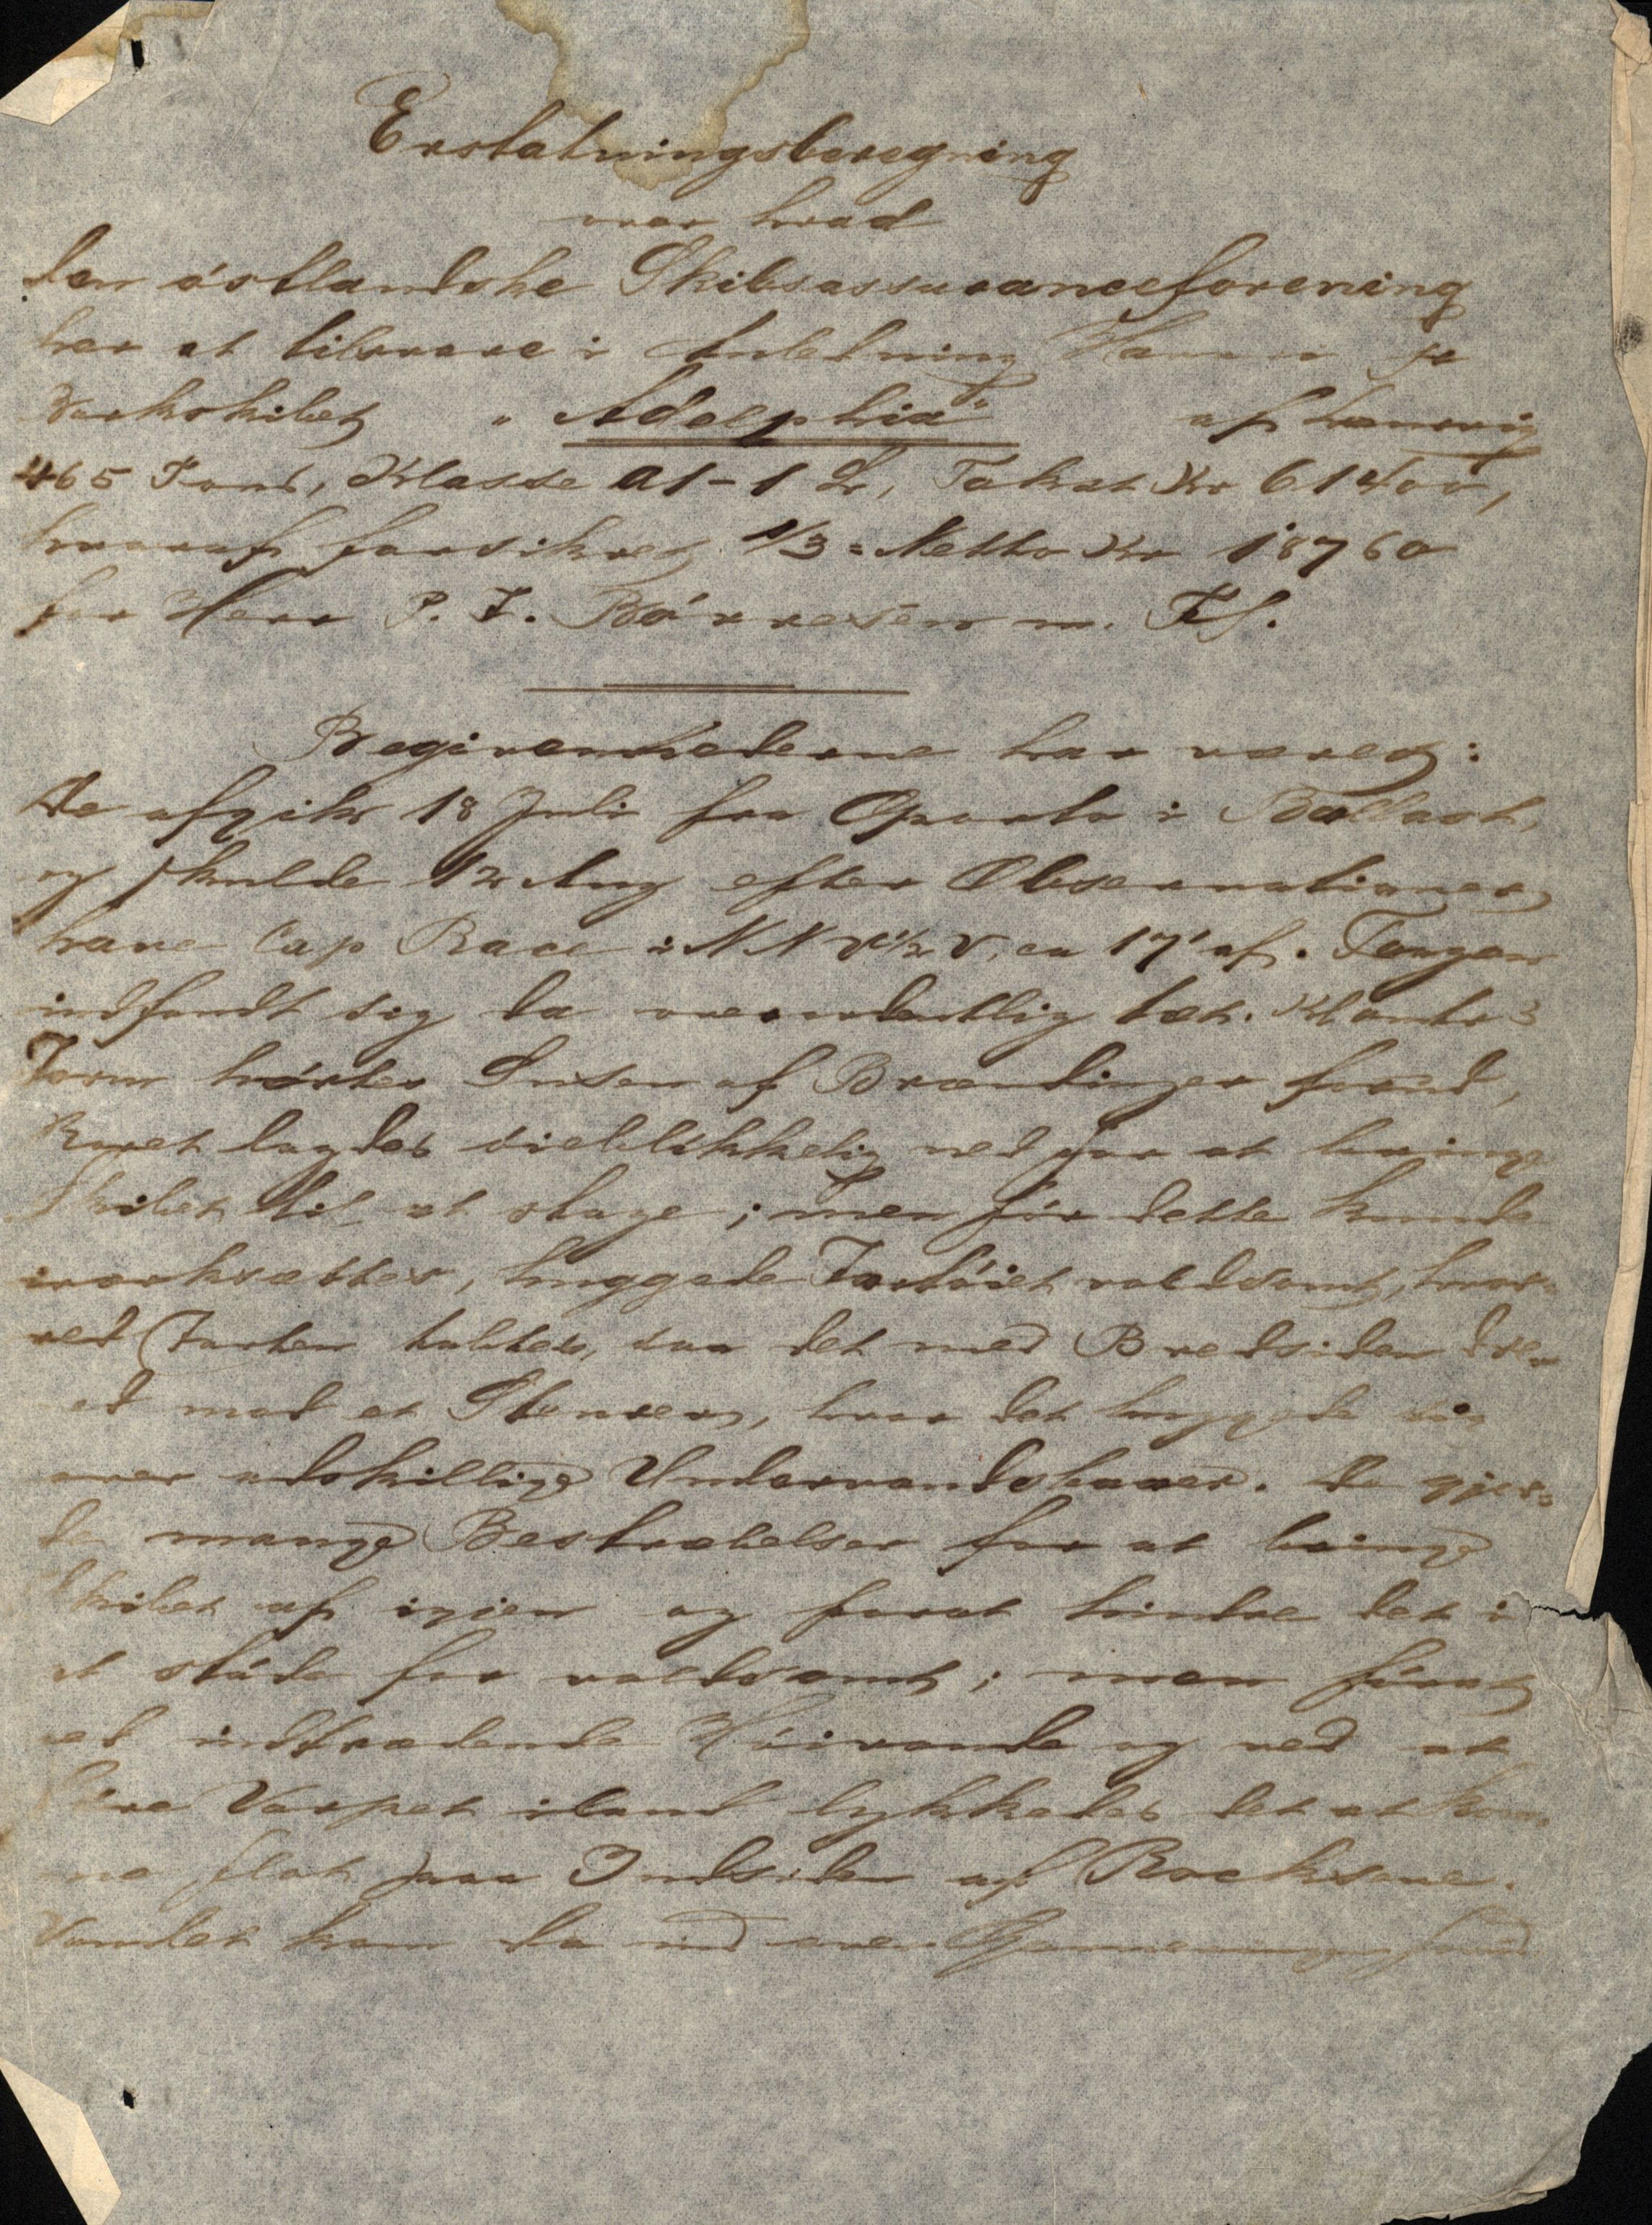 Erstatningsberegning
over hvad
den östlandske Skibsassuranceforening
har at tilsvare i Anledning Havari pr
Barkskibet "Adelphia" af Laurvig
465 Tons, Klasse A1-1 L, Takst Kr 61400,
hvoraf forsikret 1/3 = Netto Kr 18760
for Herr P. I. Börresen m. Fl.
Begivenhederne har været:
De afgik 18 Juli fra Oporto i Ballast,
og skulde 12 Aug efter Observationer
have Cap Race i NNV½V, ca 17' af. Taagen
indfandt sig da overordentlig tæt. Kl omtr 3
Form hörtes Susen af Brændinger forud,
Roret lagdes öieblikkelig ned for at bringe
Skibet til at stage; men för dette kunde
iværksættes, huggede Fartöiet voldsomt, hvor=
ved Farten tabtes, saa det med Bredsiden drev
ed mod et Stenrev, hvor det huggede sig
over adskillige Undervandsskaær. De gjor=
de mange Bestræbelser for at bringe
Skibet af igjen og forat hindre det i
at stöde for voldsomt; men först
ved indtrædende Höivande og ved at
före Varpet iland lykkedes det at kom
me flot paa Indsiden af Rocksene.
Vandet kom da ind over